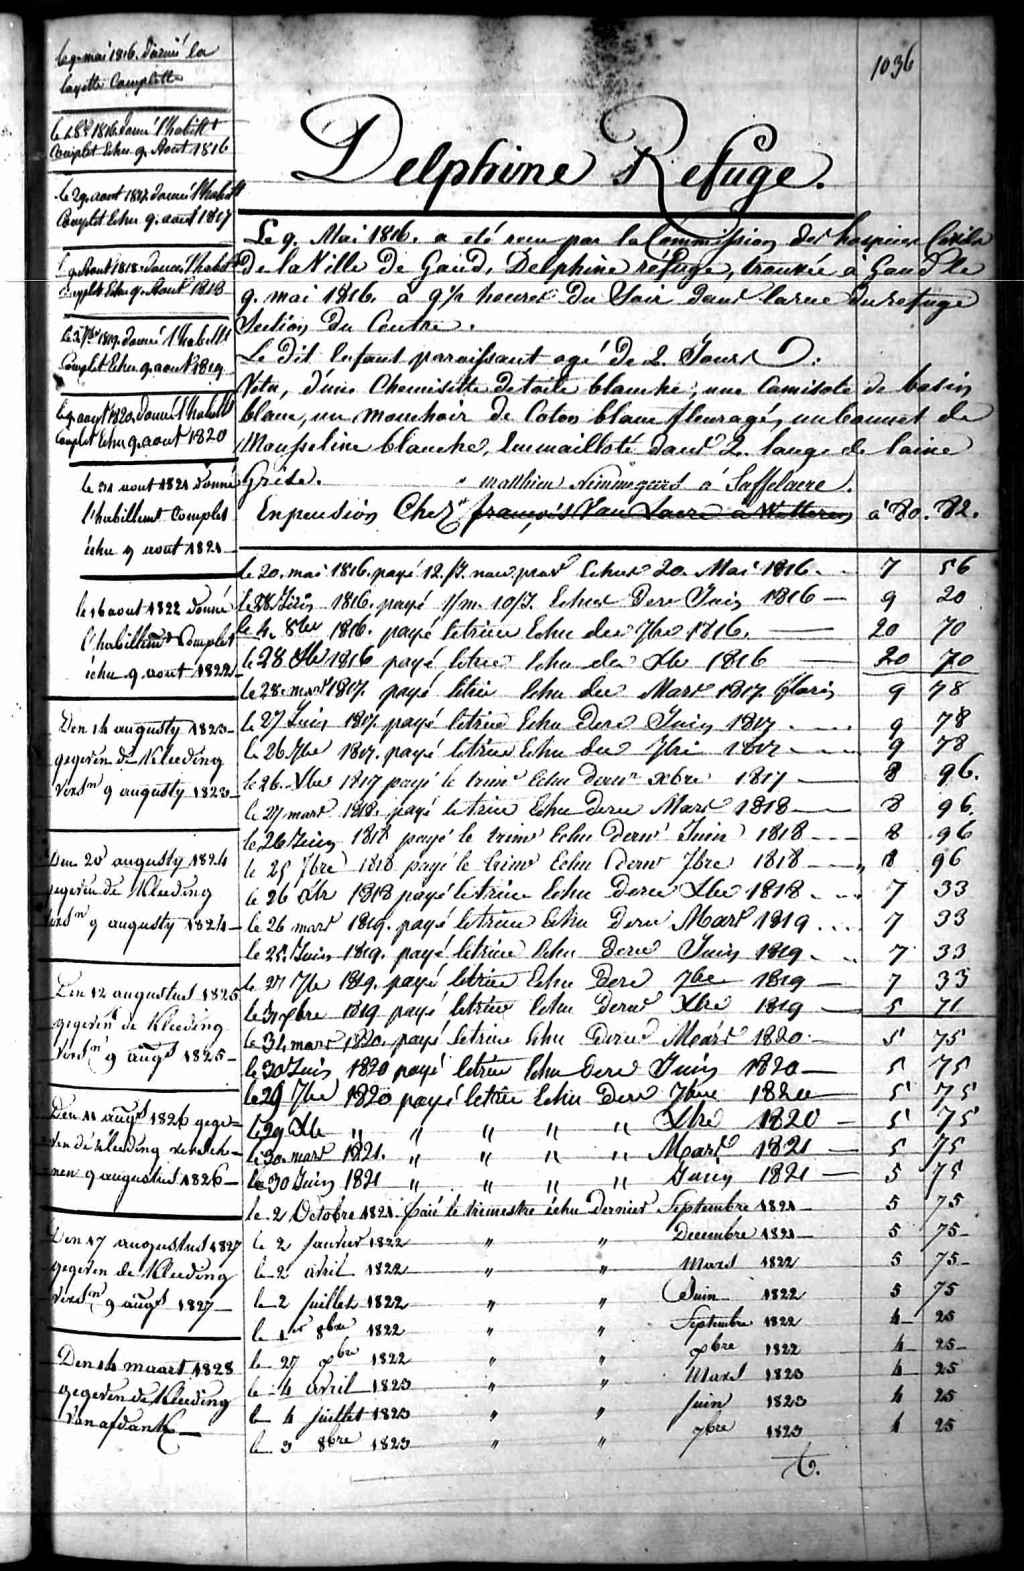 1036
Delphine Refuge.
le 9. mai 1816. donné la
layette Complette
le 28 8bre 1816. donné l'habillt
Complet Echu 9. Aout 1816
le 29. aout 1817. donné l'habillt
Complet Echu 9. aout 1817
9. Aout 1818. donné l'habillt
Complet Echu 9. Aout 1818
1819. donné l'habillt
Complet Echu 9. aout 1819
aout 1820. donné l'habillt
Complet Echu 9. aout 1820
le 31 aout 1821 donné
l'habillemt Complet
échu 9 aout 1821
le 16 aout 1822 donné
l'habillemt Complet
échu 9 aout 1822
Den 14 augusty 1823
gegeven de Kleeding
Versn 9 augusty 1823
Den 20 augusty 1824
gegeven de Kleeding
Versn 9 augusty 1824
Den 12 augustus 1825
gegeven de Kleeding
Versn 9 augs 1825
Den 11 augs 1826 gege-
ven de kleeding verschee-
nen 9 augustus 1826
Den 17 augustus 1827
gegeven de Kleeding
Versn 9 augs 1827
Den 14 maart 1828
gegeven de Kleeding
Van afdank
Le 9. Mai 1816. a eté recu par la Commission des hospices Civils
de la Ville de Gand, Delphine réfuge, trouvée à Gand le
9. mai 1816. a 9½ heures du Soir dans la rue du refuge
Section du Centre.
Le dit Enfant paroissant agé de 2. Jours
Vetu, d'une Chemisette de toile blanche, une Camisole de basin
blanc, un mouchoir de Coton blanc fleuragé, un bonnet de
Mousseline blanche, Emmailloté dans 2. lange de laine
Grise. matthieu à Saffelaere.
En pension Chez françois Van Laere a Wetteren à 80. 82.
le 20. mai 1816. payé 12. Echus 20. Mai 1816. 7 56
le 28 Juin 1816. payé 1/m. 10/J. Echus Dere Juin 1816 9 20
le 4. 8bre 1816. payé letrim Echu der 7bre 1816. 20 70
le 28 Xbre 1816 payé letrim Echu der Xbre 1816 20 70
le 28. mars 1817. payé letrim Echu der Mars 1817. florins 9 78
le 27 Juin 1817. payé letrim Echu Dere Juin 1817 9 78
le 26 7bre 1817. payé letrim Echu der 7bre 1817 9 78
le 26. Xbre 1817 payé le trimr Echu dernr xbre 1817 8 96.
le 27 mars 1818. payé letrim Echu Dere Mars 1818 8 96.
le 26 Juin 1818 payé le trimr Echu dernr Juin 1818 8 96
le 25 7bre 1818 payé le trimr Echu dernr 7bre 1818 „ 8 96
le 26 Xbr 1818 payé letrim Echu Dere Xbre 1818 7 33
le 26 mars 1819. payé letrim Echu Dere Mars 1819 7 33
le 25. Juin 1819. payé letrim Echu Dere Juin 1819 7 33
le 27 7bre 1819. payé letrim Echu Dere 7bre 1819 7 33
le 31 xbre 1819 payé letrim Echu Derne Xbre 1819 5 71
le 31 mars 1820. payé letrim Echu Derne Mars 1820 5 75
le 30 Juin 1820 payé letrim Echu Dere Juin 1820 5 75
le 29 7bre 1820 payé letrim Echu Dere 7bre 1820 5 75
le 29 Xbre „ „ „ „ „ Xbre 1820 5 75
le 30 mars 1821. „ „ „ „ Mars 1821 5 75
le 30 Juin 1821 „ „ „ „ Juin 1821 5 75
le 2 Octobre 1821. païé le trimestre échu dernier Septembre 1821 5 75
le 2 Janvier 1822 „ „ Decembre 1821 5 75
le 2 avril 1822 „ „ Mars 1822 5 75
le 2 Juillet 1822 „ „ Juin 1822 5 75
le 1er 8bre 1822 „ „ Septembre 1822 4 25
le 27 xbre 1822 „ „ xbre 1822 4 25
le 4 avril 1823 „ „ Mars 1823 4 25
le 4 juillet 1823 „ „ juin 1823 4 25
le 3 8bre 1823 „ „ 7bre 1823 4 25